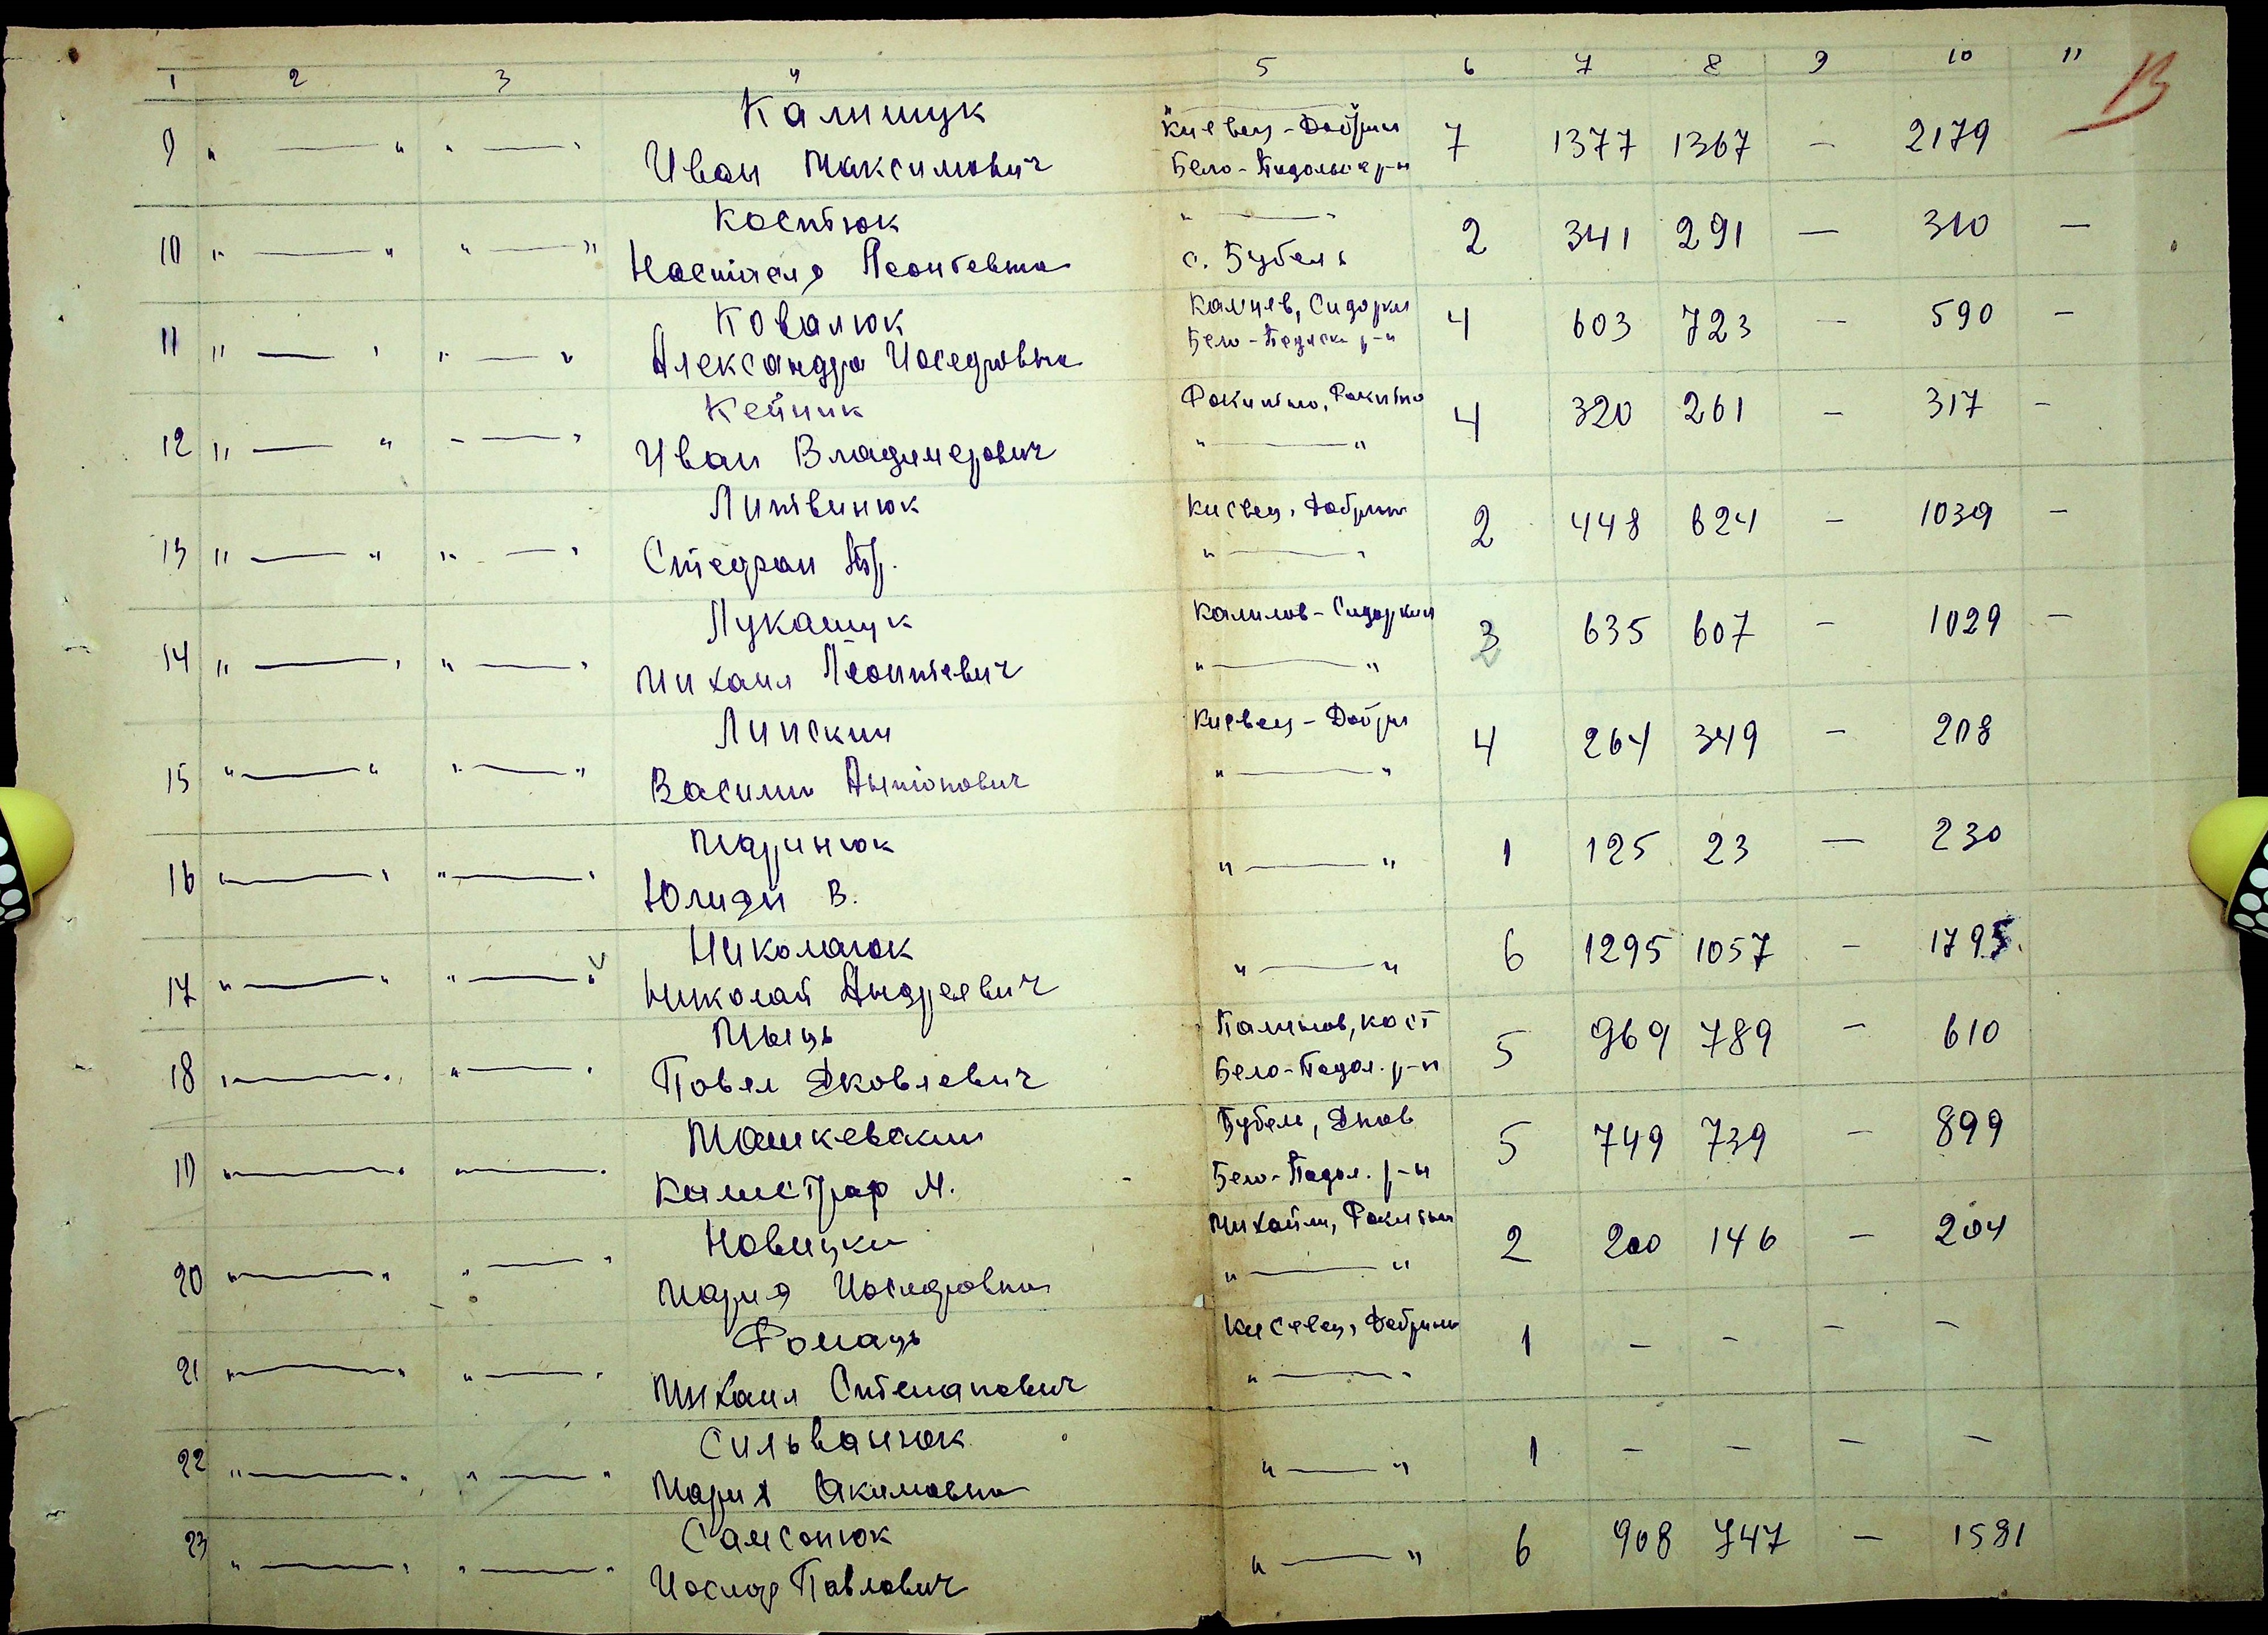 1 2 3 4 5 6 7 8 9 10 11
13
Калишук
9 " — " " — " Иван Максимович Киевец - Добрин 7 1377 1367 — 2179 —
Бело-Подольск р-н
Костюк
10 " — " " — " Настасия Леонтевна " — " 2 341 291 — 310 —
с. Бубель
Ковалюк Сидорки
11 " — " " — " Александра Иосефовна Бело- р-н 4 603 723 — 590 —
Кейчик
12 " — " " — " Иван Владимерович Рокитно, Рокитно 4 320 261 — 317 —
" — "
Литвинюк
13 " — " " — " Стефан Киевец, Добрин 2 448 624 — 1039 —
" — "
Лукашук
14 " — " " — " Михаил Леонтевич Калилов - Сидорки 3 635 607 — 1029 —
" — "
Липский
15 " — " " — " Василий Антонович Киевец - Добри 4 264 349 — 208
" — "
Маринюк
16 " — " " — " Юлиян В. " — " 1 125 23 — 230
Николаюк
17 " — " " — " Николай Андреевич " — " 6 1295 1057 — 1795
Мыць
18 " — " " — " Павел Яковлевич кост 5 969 789 — 610
Бело-Подол. р-н
Машкевский
19 " — " " — " М. Бубель, Янов 5 749 739 — 899
Бело-Подол. р-н
Новицки
20 " — " " — " Мария Иосефовна Рокитни 2 200 146 — 204
" — "
Ромаць
21 " — " " — " Михаил Степанович Киевец, Добрин 1 — — — —
" — "
Сильванюк
22 " — " " — " Мария Акимовна " — " 1 — — — —
Самсонюк
23 " — " " — " Иосиф Павлович " — " 6 908 747 — 1581